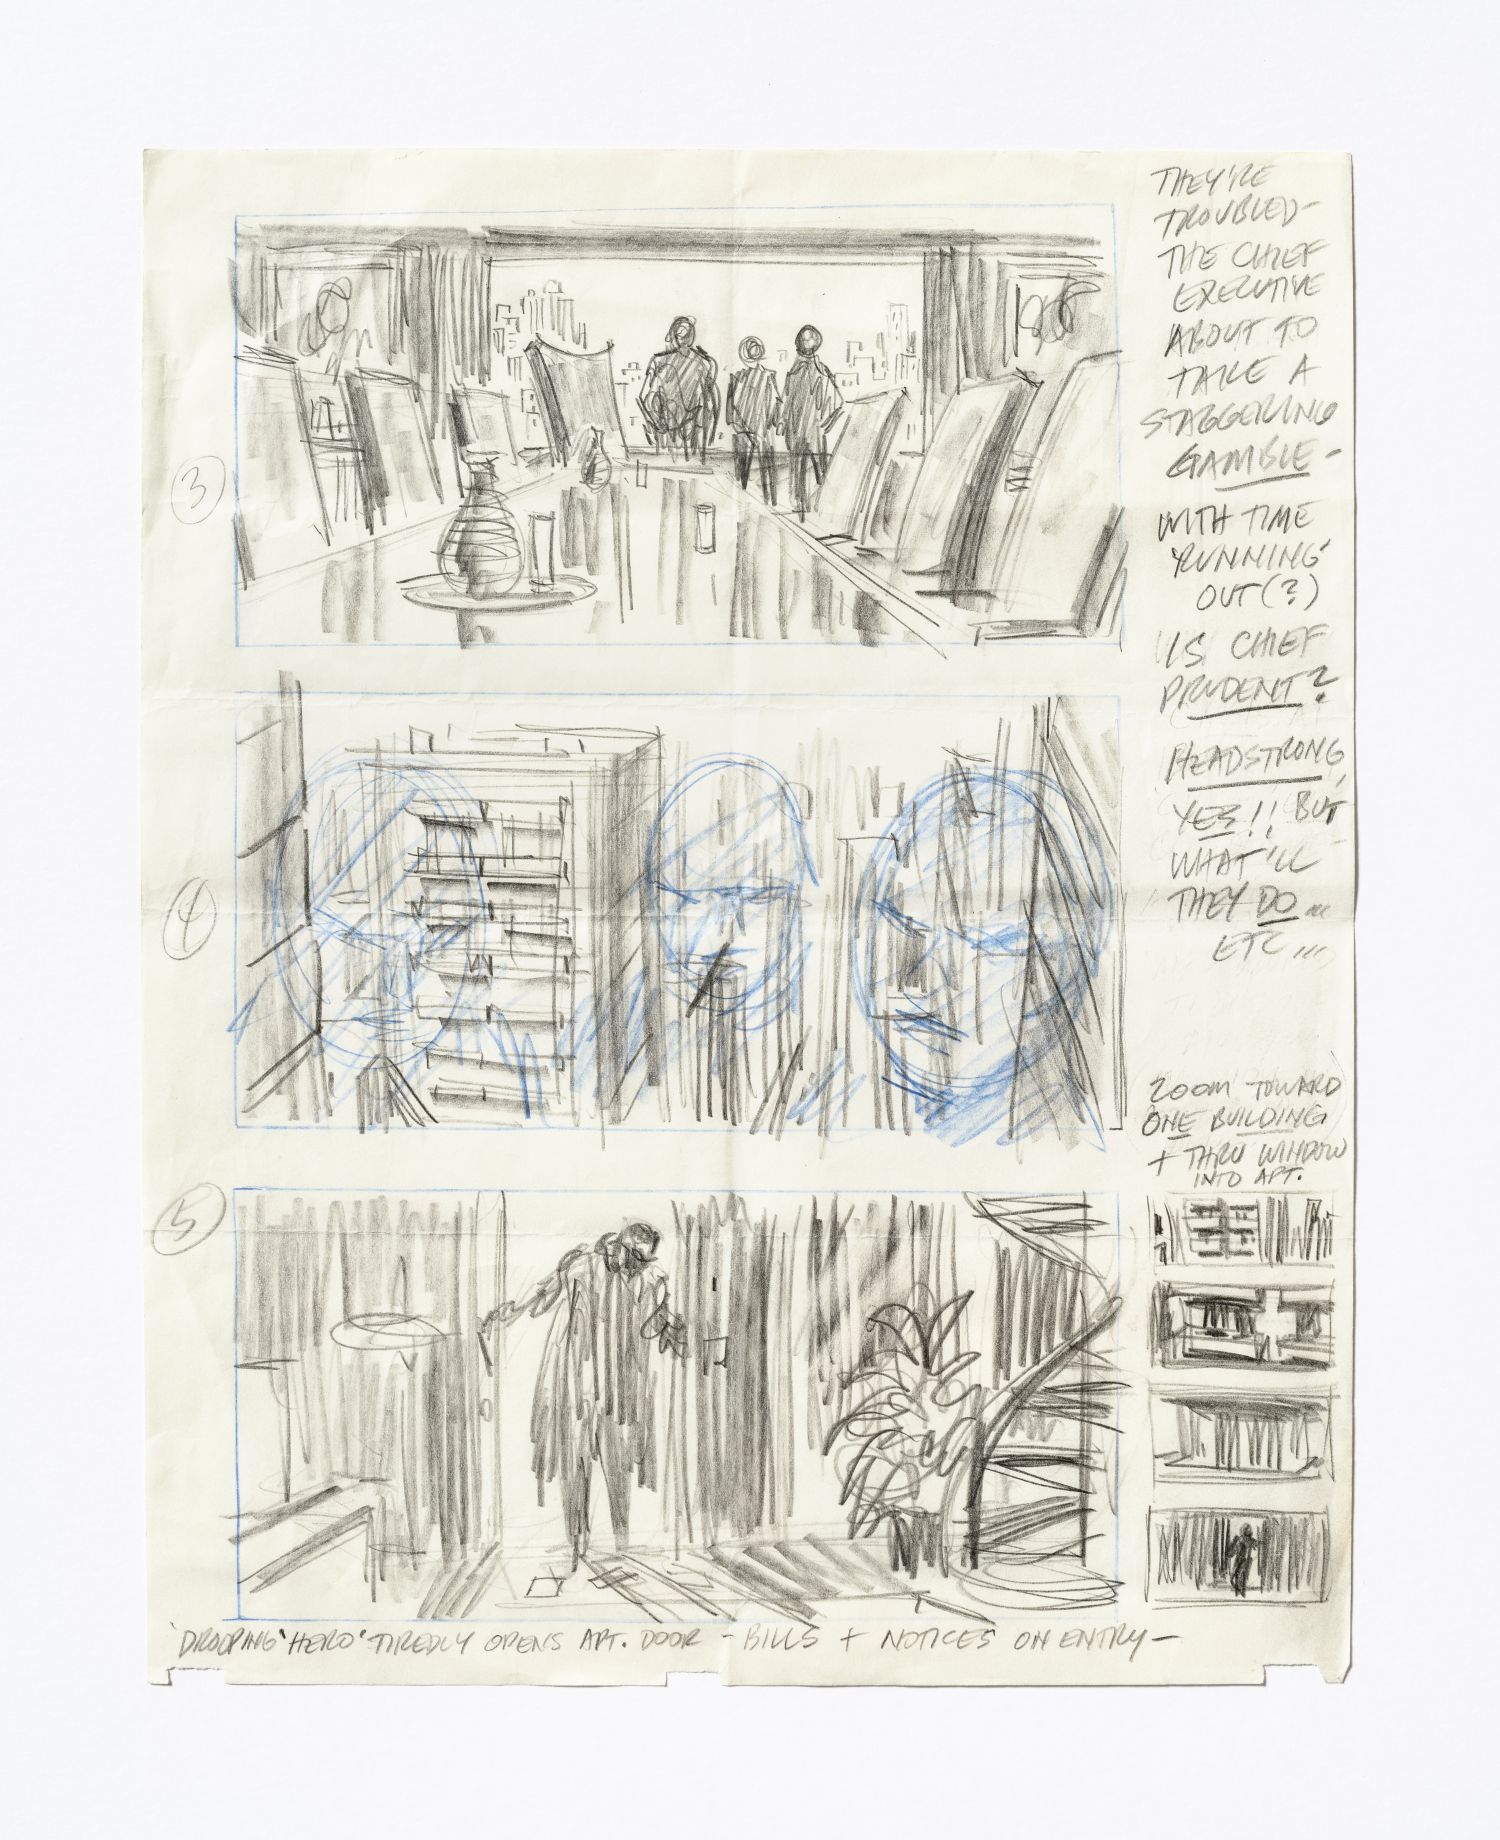 THEY'RE
TROUBLED-
THE CHIEF
EXECUTIVE
ABOUT TO
TAKE A
STAGGERING
GAMBLE-
WITH TIME
'RUNNING'
OUT(?)
IS CHIEF
PRUDENT?
HEADSTRONG,
YES!! BUT
WHAT'LL
THEY DO...
ETC...
3
4
ZOOM TOWARD
ONE BUILDING
+ THRU WINDOW
INTO APT.
5
'DROOPING' 'HERO' TIREDLY OPENS APT. DOOR - BILLS + NOTICES ON ENTRY-